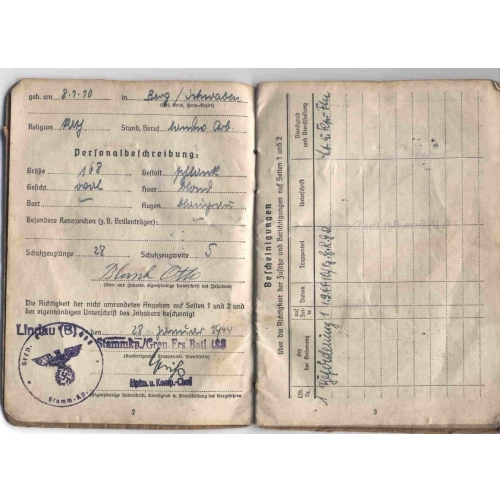 geb. am 8.1.10 in Berg / Schwaben
(Ort, Kreis, Verw.-Bezirk)
Religion Stand, Beruf
Personalbeschreibung:
Größe 168 Gestalt schlank
Gesicht oval Haar blond
Bart — Augen blaugrau
Besondere Kennzeichen (z. B. Brillenträger):
Schuhzeuglänge 28 Schuhzeugweite 5
Blank Otto
(Vor- und Zuname, eigenhändige Unterschrift des Inhabers)
Die Richtigkeit der nicht umrandeten Angaben auf Seiten 1 und 2 und
der eigenhändigen Unterschrift des Inhabers bescheinigt
Lindau (B) den 28. Januar 1944
Stammkp./Gren. Ers. Batl. 488
Hptm. u. Komp.-Chef
(Eigenhändige Unterschrift, Dienstgrad u. Dienststellung des Vorgesetzten)
2
Bescheinigungen
über die Richtigkeit der Zusätze und Berichtigungen auf Seiten 1 und 2
Lfd. Nr.
Art der Änderung
auf Seite
Datum
Truppenteil
Unterschrift
Dienstgrad und Dienststellung
1 Beförderung 1
3